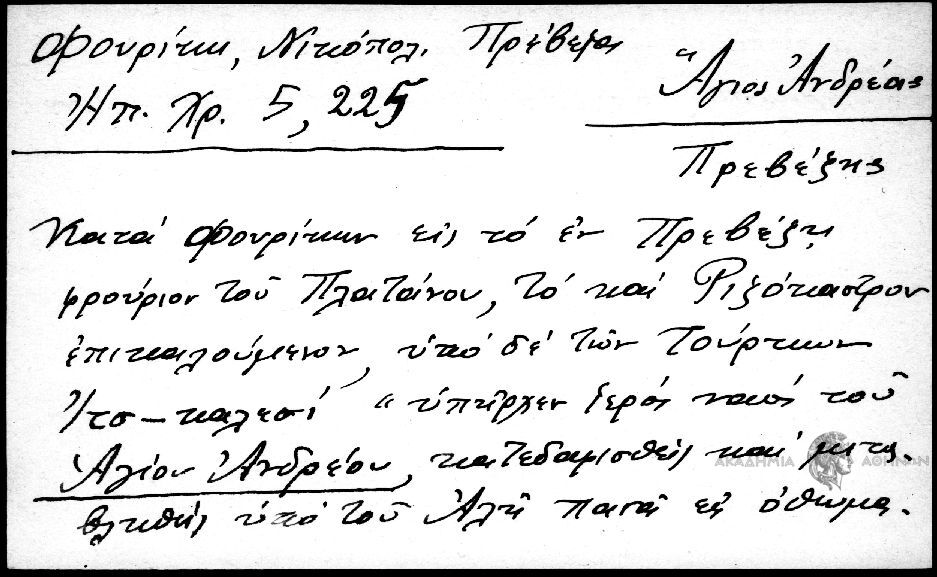 Φουρίκη, Νικόπολ. Πρέβεζα
Ἠπ. Χρ. 5, 225
Ἅγιος Ἀνδρέας
Πρεβέζης
Κατά Φουρίκην εἰς τό ἐν Πρεβέζῃ
φρούριον τοῦ Πλατάνου, τό καί Ριζόκαστρον
ἐπικαλούμενον, ὑπό δέ τῶν Τούρκων
Ἰτσ-καλεσί "ὑπῆρχεν ἱερός ναός τοῦ
Ἁγίου Ἀνδρέου, κατεδαφισθείς καί μετα-
βληθείς ὑπό τοῦ Ἀλῆ πασᾶ εἰς ὀθωμα-
ΑΚΑΔΗΜΙΑ ΑΘΗΝΩΝ